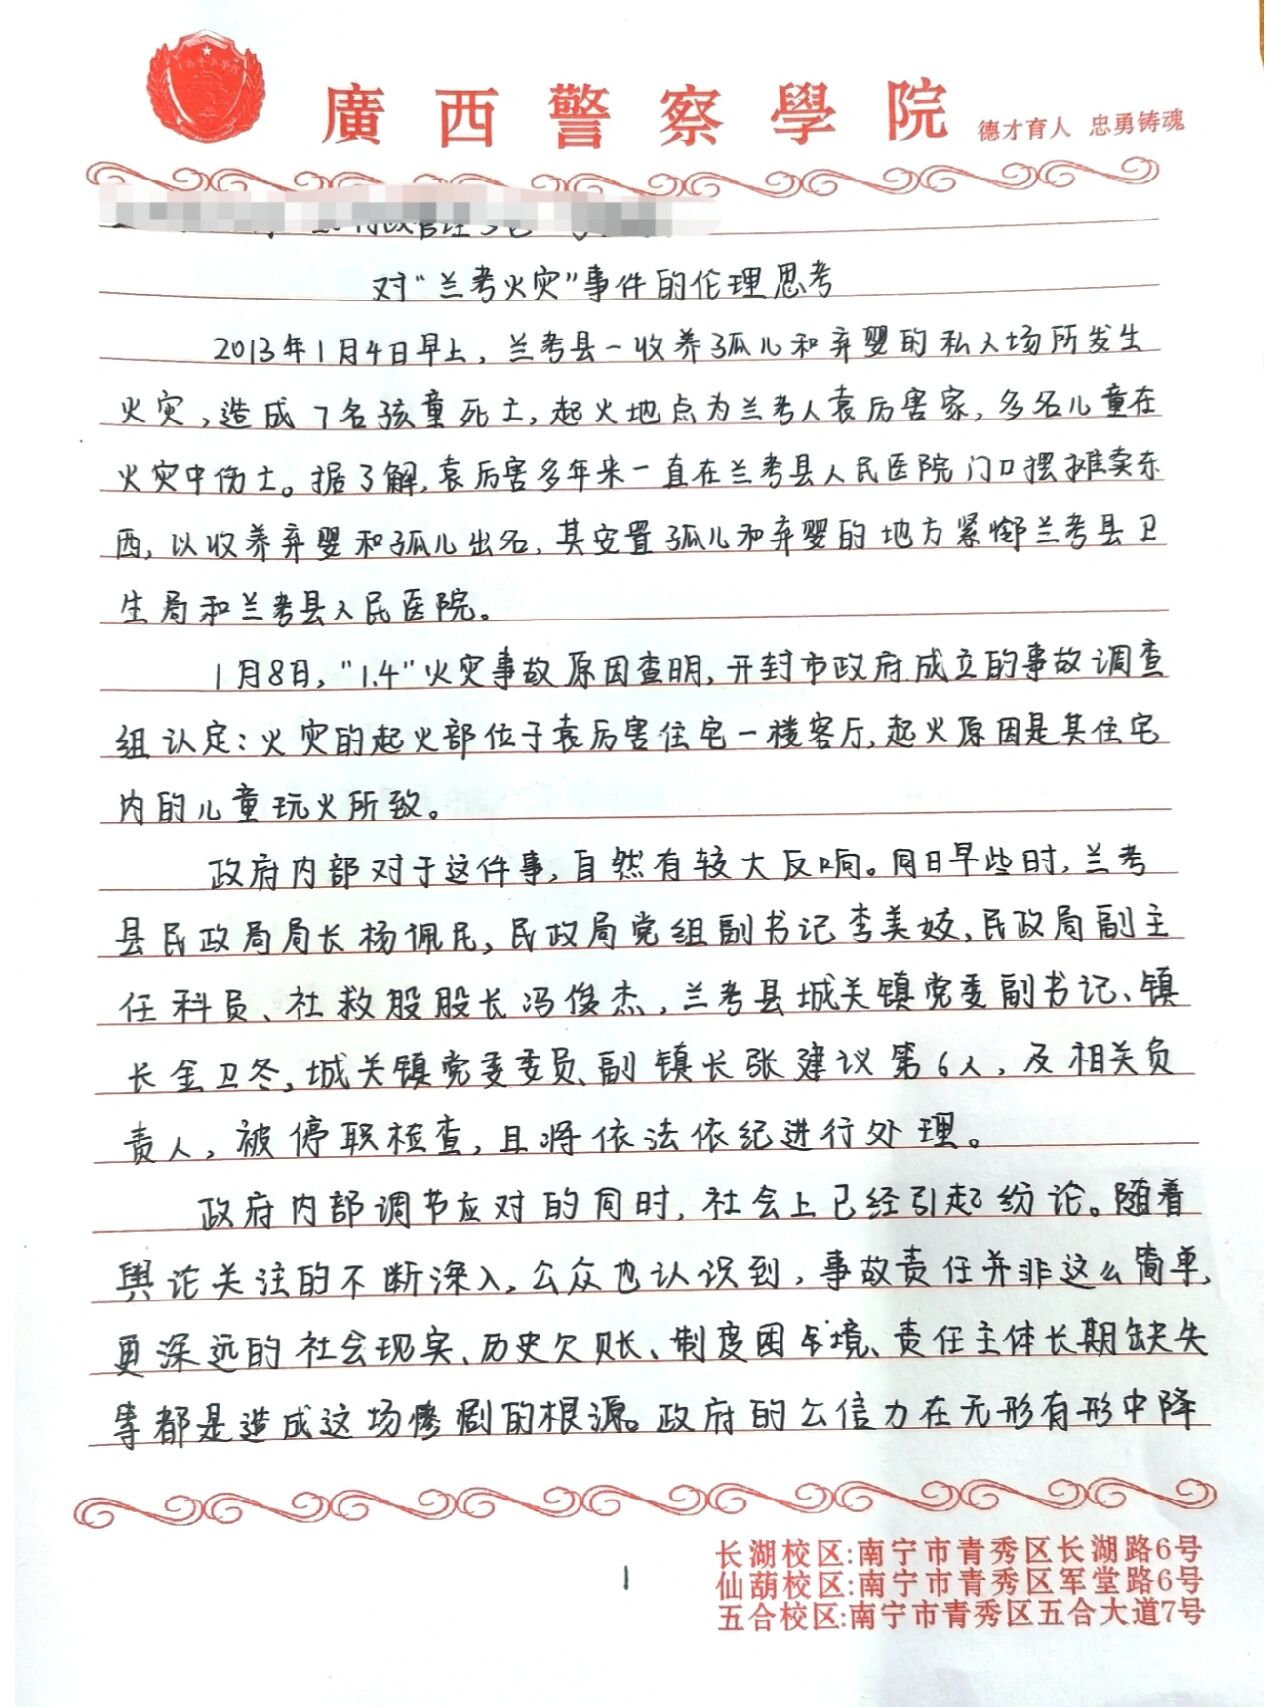 廣西警察學院 德才育人 忠勇铸魂
行政管理
对“兰考火灾”事件的伦理思考
2013年1月4日早上，兰考县一收养孤儿和弃婴的私人场所发生
火灾，造成7名孩童死亡，起火地点为兰考人袁厉害家，多名儿童在
火灾中伤亡。据了解，袁厉害多年来一直在兰考县人民医院门口摆摊卖东
西，以收养弃婴和孤儿出名，其安置孤儿和弃婴的地方紧邻兰考县卫
生局和兰考县人民医院。
1月8日，“1.4”火灾事故原因查明，开封市政府成立的事故调查
组认定：火灾的起火部位于袁厉害住宅一楼客厅，起火原因是其住宅
内的儿童玩火所致。
政府内部对于这件事，自然有较大反响。同日早些时，兰考
县民政局局长杨佩民，民政局党组副书记李美姣，民政局副主
任科员、社救股股长冯俊杰，兰考县城关镇党委副书记、镇
长金卫冬，城关镇党委委员、副镇长张建议第6人，及相关负
责人，被停职检查，且将依法依纪进行处理。
政府内部调节应对的同时，社会上已经引起纷论。随着
舆论关注的不断深入，公众也认识到，事故责任并非这么简单，
更深远的社会现实、历史欠账、制度困境、责任主体长期缺失
等都是造成这场惨剧的根源。政府的公信力在无形有形中降
1
长湖校区:南宁市青秀区长湖路6号
仙葫校区:南宁市青秀区军堂路6号
五合校区:南宁市青秀区五合大道7号